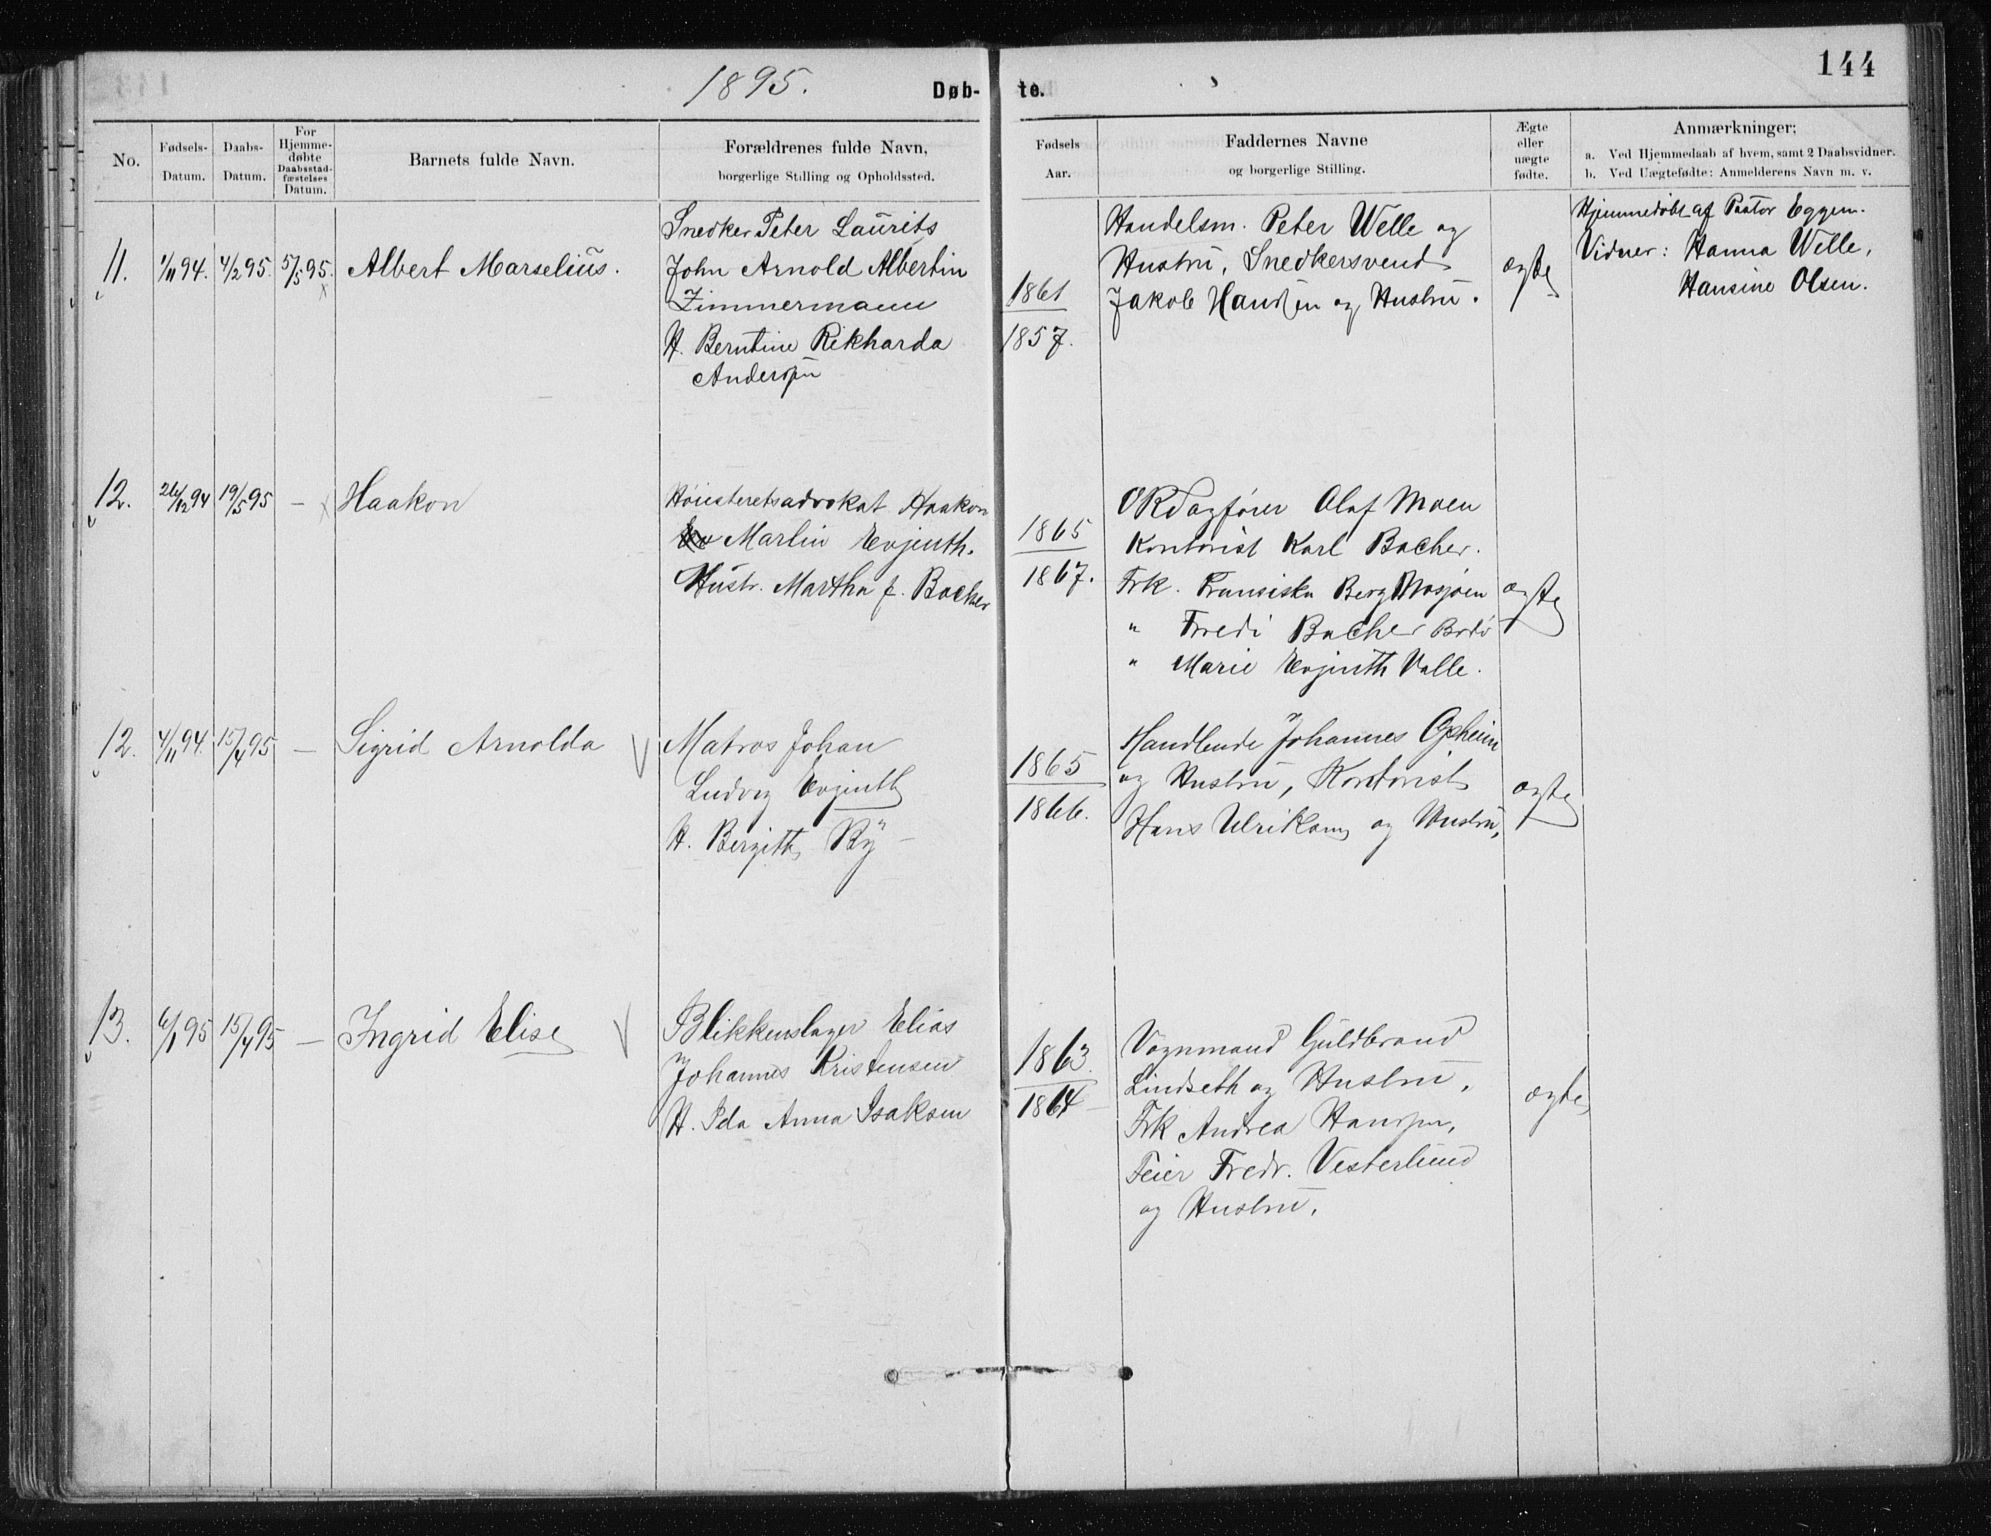 144
1895.
Døb-
te.
No.
Fødsels-
Datum.
Daabs-
Datum.
For
Hjemme-
døbte
Daabsstad-
fæstelses
Datum.
Barnets fulde Navn.
Forældrenes fulde Navn,
borgerlige Stilling og Opholdssted.
Fødsels
Aar.
Faddernes Navne
og borgerlige Stilling.
Ægte
eller
uægte
fødte.
Anmærkninger;
a. Ved Hjemmedaab af hvem, samt 2 Daabsvidner.
b. Ved Uægtefødte: Anmelderens Navn m. v.
11.
1/11 94.
4/2 95.
5/5 95.
Albert Marselius.
Snedker Peter Laurits
John Arnold Albertin
Zimmermann
H. Berntine Rikharda
Andersen
1861
1857.
Handelsm. Peter Welle og
Hustru, Snedkersvend
Jakob Hansen og Hustru.
ægte
Hjemmedøbt af Pastor Eggen.
Vidner: Hanna Welle,
Hansine Olsen.
12.
26/12 94
19/5 95
—
Haakon
Høiesteretsadvokat Haakon
Martin Evjenth.
Hustr. Martha f. Bacher
1865
1867.
ORSagfører Olaf Moen
Kontorist Karl Bacher.
Frk. Fransiska Berg Mosjøen
" Fredi Bacher Bodø
" Marie Evjenth Valle.
ægte
12.
4/11 94.
15/4 95
—
Sigrid Arnolda
Matros Johan
Ludvig Evjenth
H. Bergitha Ry —
1865
1866.
Handlende Johannes
og Hustru, Kontorist
Hans Ulriksen og Hustru,
ægte
13.
6/1 95
15/4 95
—
Ingrid Elise
Blikkenslager Elias
Johannes Kristensen
H. Ida Anna Isaksen
1863.
1864 —
Vognmand Guldbrand
Lindseth og Hustru,
Frk Andrea Hansen,
Feier Fredr. Vesterlund
og Hustru.
ægte